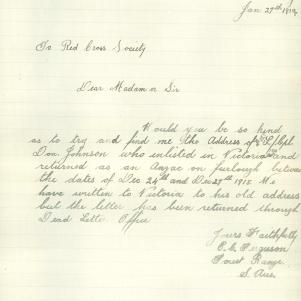 Jan 27th 1919
To Red Cross Society
Dear Madam or Sir
Would you be so kind
as to try and find me the Address of L/Cpl
Don. Johnson who enlisted in Victoria and
returned as an Anzac on furlough between
the dates of Dec 24th and Dec 29th 1918 We
have written to Victoria to his old address
but the letter has been returned through
Dead Letter Office
Yours Faithfully
Ferguson
Forest Range
S. Aus.